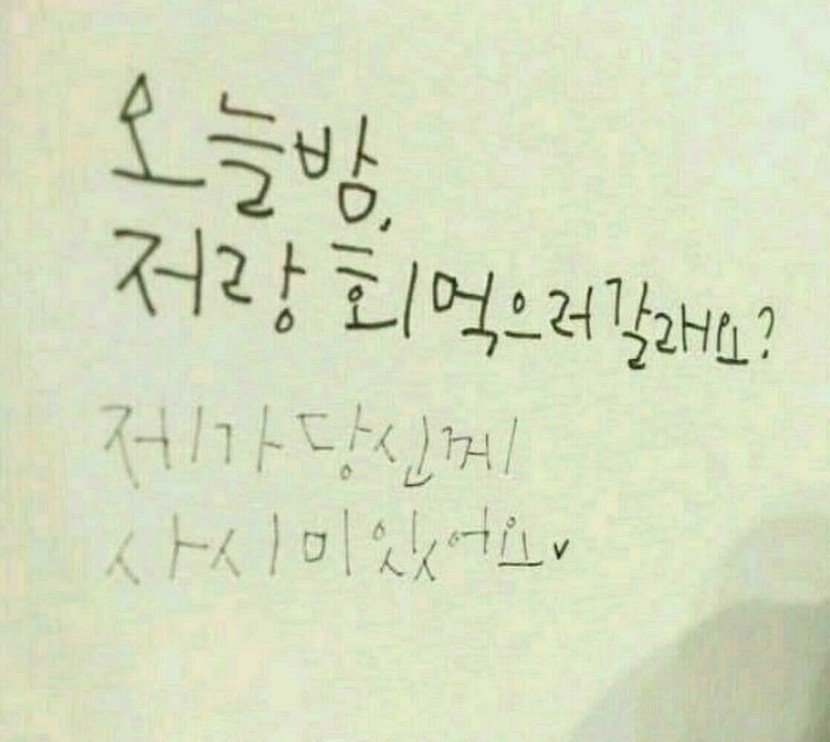 오늘밤,
저랑 회 먹으러갈래요?
제가 당신께
사시미있어요v